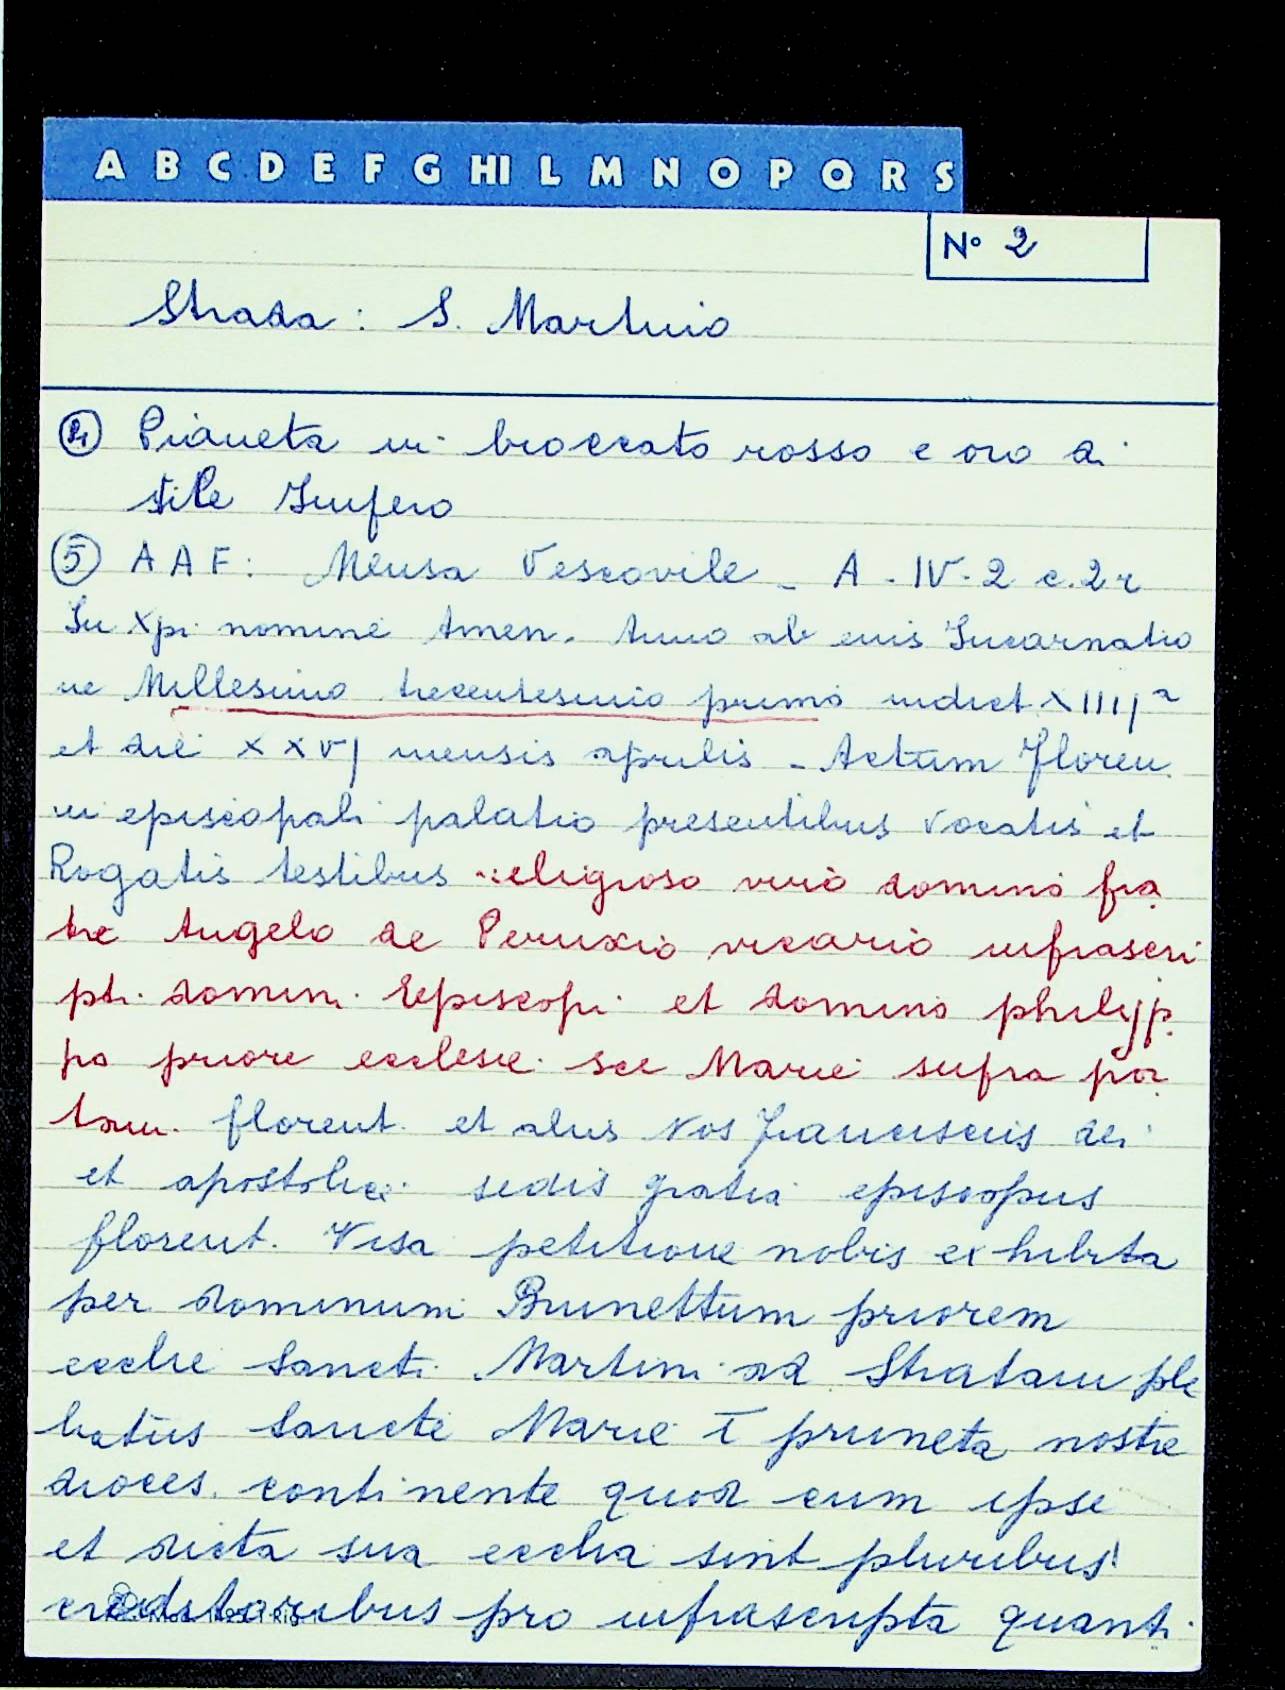 A B C D E F G HI L M N O P Q R S
N° 2
Strada: S. Martino
④ Pianeta in broccato rosso e oro di
stile Impero
⑤ A A F: Mensa Vescovile - A - IV - 2 c. 2 r
In Xpi nomine Amen. Anno ab eius Incarnatio
ne Millesimo trecentesimo primo indict. XIIIJª
et die XXVJ mensis aprilis - Actum Floren.
in episcopali palatio presentibus vocatis et
Rogatis testibus religioso viro domino fra
tre Angelo de Peruxio vicario infrascri
pti domini Episcopi et domino philyp
po priore ecclesie sce Marie supra por
tam florent. et aliis Nos Franciscus dei
et apostolice sedis gratia episcopus
florent. Visa petitione nobis exhibita
per dominum Brunettum priorem
ecclie Sancti Martini ad Stratam ple
batus Sancte Marie ī pruneta nostre
dioces. continente quod cum ipse
et dicta sua ecclia sint pluribus
creditoribus pro infrascripta quanti